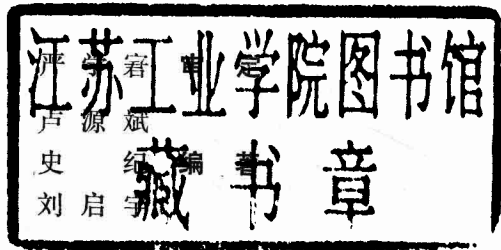 江苏工业学院图书馆
藏书章
严学宭 审定
卢源斌
史 纪 编著
刘启宇